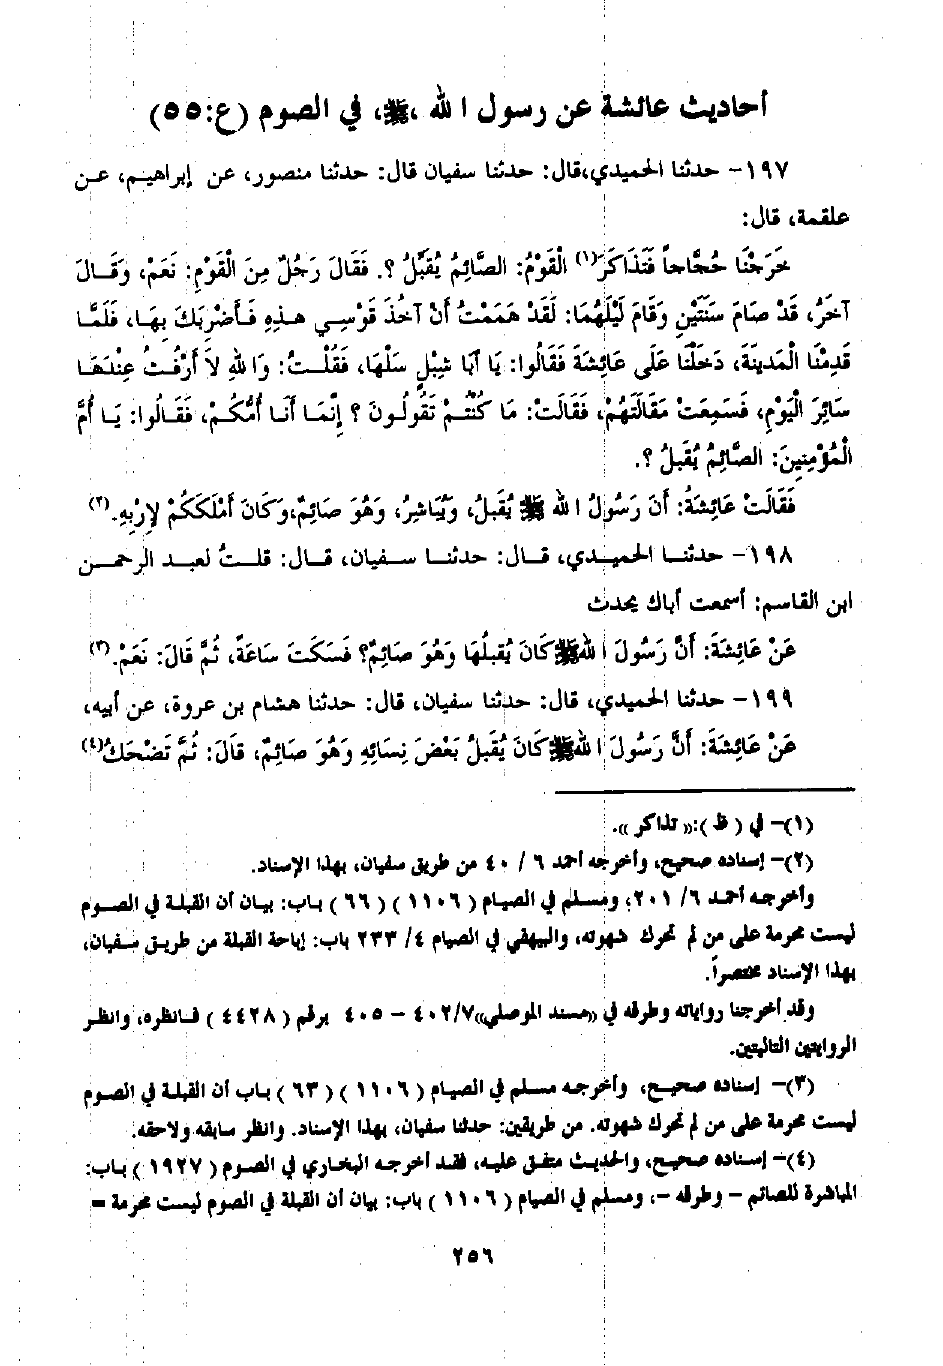 أحاديث عائشة عن رسول الله ،ﷺ، في الصوم (ع:٥٥)
١٩٧- حدثنا الحميدي،قال: حدثنا سفيان قال: حدثنا منصور، عن إبراهيم، عن
علقمة، قال:
خَرَجْنَا حُجَّاجاً فَتَذَاكَرَ(١) الْقَوْمُ: الصَّائِمُ يُقَبِّلُ ؟. فَقَالَ رَجُلٌ مِنَ الْقَوْمِ: نَعَمْ، وَقَالَ
آخَرُ، قَدْ صَامَ سَنَتَيْنِ وَقَامَ لَيْلَهُمَا: لَقَدْ هَمَمْتُ أَنْ آخُذَ قَوْسِي هذِهِ فَأَضْرِبَكَ بِهَا، فَلَمَّا
قَدِمْنَا الْمَدينَةَ، دَخَلْنَا عَلَى عَائِشَةَ فَقَالُوا: يَا أَبَا شِبْلٍ سَلْهَا، فَقُلْتُ: وَاللهِ لاَ أَرْفُثُ عِنْدَهَا
سَائِرَ الْيَوْمِ، فَسَمِعَتْ مَقَالَتَهُمْ، فَقَالَتْ: مَا كُنْتُمْ تَقُولُونَ ؟ إِنَّمَا أَنَا أُمُّكُمْ، فَقَالُوا: يَا أُمَّ
الْمُؤْمِنِينَ: الصَّائِمُ يُقَبلُ ؟.
فَقَالَتْ عَائِشَةُ: أَنَ رَسُولُ الله ﷺ يُقَبلُ، وَيُبَاشِرُ، وَهُوَ صَائِمٌ،وَكَانَ أَمْلَكَكُمْ لإِرْبِهِ.(٢)
١٩٨- حدثنا الحميدي، قال: حدثنا سفيان، قال: قلتُ لعبد الرحمن
ابن القاسم: أسمعت أباك يحدث
عَنْ عَائِشَةَ: أَنَّ رَسُولَ اللهﷺكَانَ يُقَبلُهَا وَهُوَ صَائِمٌ؟ فَسَكَتَ سَاعَةً، ثُمَّ قَالَ: نَعَمْ.(٣)
١٩٩- حدثنا الحميدي، قال: حدثنا سفيان، قال: حدثنا هشام بن عروة، عن أبيه،
عَنْ عَائِشَةَ: أَنَّ رَسُولَ اللهﷺكَانَ يُقَبلُ بَعْضَ نِسَائِهِ وَهُوَ صَائِمٌ، قَالَ: ثُمَّ تَضْحَكُ(٤)
(١)- في ( ظ ):« تذاكر ».
(٢)- إسناده صحيح، وأخرجه أحمد ٦ / ٤٠ من طريق سفيان، بهذا الإسناد.
وأخرجه أحمد ٦/ ٢٠١؛ ومسلم في الصيام ( ١١٠٦ ) ( ٦٦ ) باب: بيان أن القبلة في الصوم
ليست محرمة على من لم تحرك شهوته، والبيهقي في الصيام ٤/ ٢٣٣ باب: إباحة القبلة من طريق سفيان،
بهذا الإسناد مختصراً.
وقد أخرجنا رواياته وطرقه في «مسند الموصلي»٤٠٢/٧ – ٤٠٥ برقم ( ٤٤٢٨ ) فانظره، وانظر
الروايتين التاليتين.
(٣)- إسناده صحيح، وأخرجه مسلم في الصيام ( ١١٠٦ ) ( ٦٣ ) باب أن القبلة في الصوم
ليست محرمة على من لم تحرك شهوته. من طريقين: حدثنا سفيان، بهذا الإسناد. وانظر سابقه ولاحقه.
(٤)- إسناده صحيح، والحديث متفق عليه، فقد أخرجه البخاري في الصوم ( ١٩٢٧ ) باب:
المباشرة للصائم – وطرقه –، ومسلم في الصيام ( ١١٠٦ ) باب: بيان أن القبلة في الصوم ليست محرمة =
٢٥٦